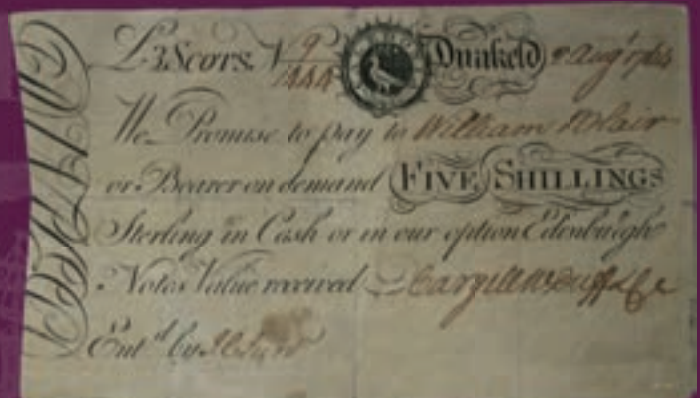 £3 Scots. No 9/444 Dunkeld 2 Augt 1764
We Promise to pay to William Blair
or Bearer on demand FIVE SHILLINGS
Sterling in Cash or in our option Edenburgh
Notes Value received
Entd. by